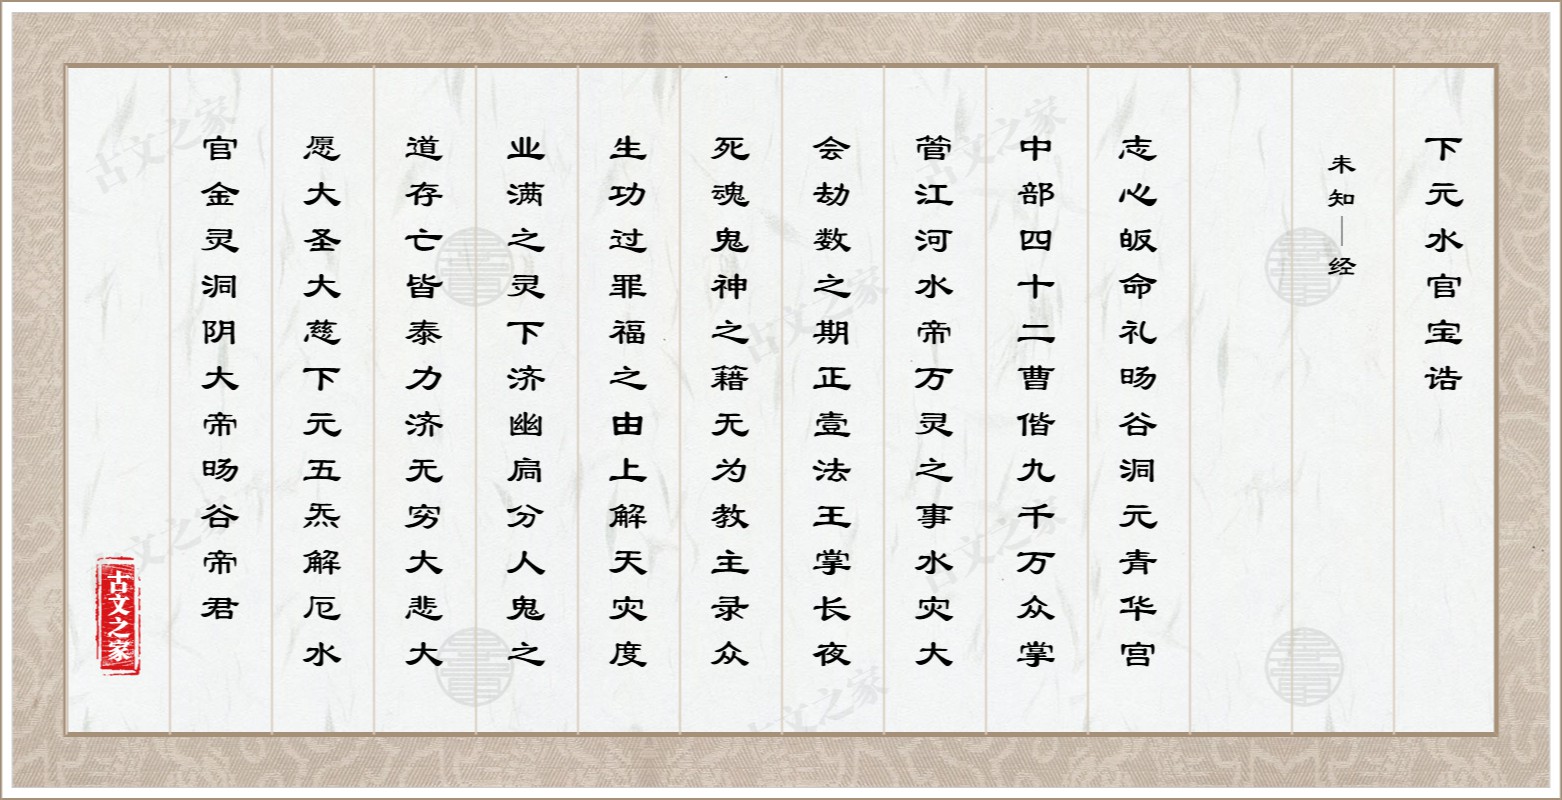 下元水官宝诰
未知｜经
志心皈命礼旸谷洞元青华宫
中部四十二曹偕九千万众掌
管江河水帝万灵之事水灾大
会劫数之期正壹法王掌长夜
死魂鬼神之籍无为教主录众
生功过罪福之由上解天灾度
业满之灵下济幽扃分人鬼之
道存亡皆泰力济无穷大悲大
愿大圣大慈下元五炁解厄水
官金灵洞阴大帝旸谷帝君
古文之家